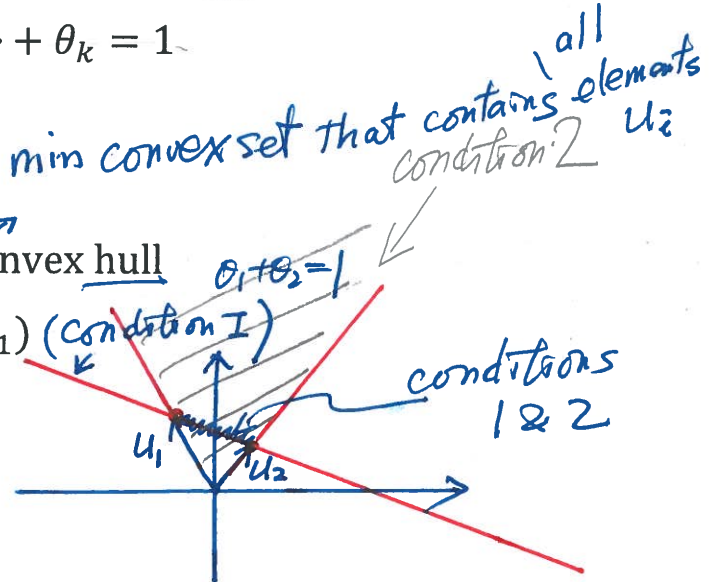 · + θₖ = 1
all
min convex set that contains elements
uᵢ
condition 2
nvex hull
θ₁+θ₂=1
₁) (condition I)
conditions
1 & 2
u₁
u₂